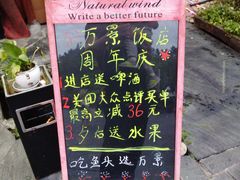 Natural wind
Write a better future
万景饭店
周年庆
1.进店送啤酒
2.美团大众点评买单
最高立减36元
3.夕后送水果
吃鱼头选万景